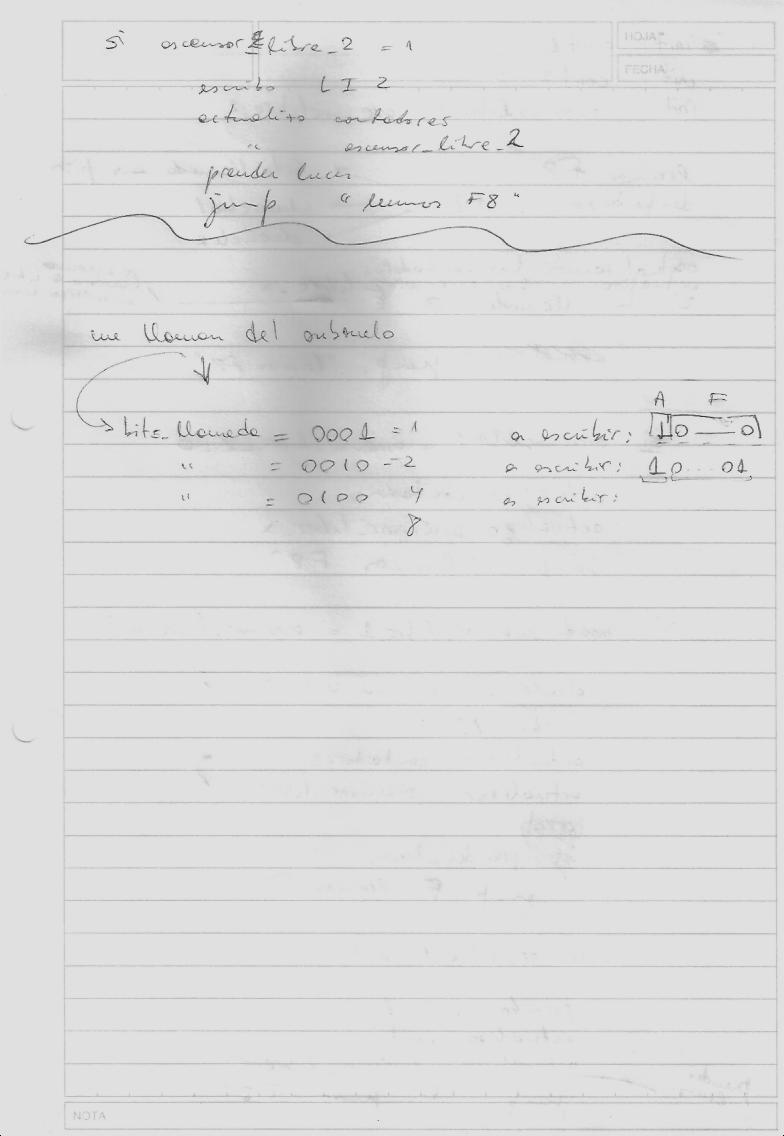 si ascensor_libre_2 = 1
escribo L I 2
actualizo contadores
" ascensor_libre_2
prender luces
jump "leemos F8"
me llaman del subsuelo
A F
bits_llamada = 0001 = 1 a escribir: 10 — 0
" = 0010 = 2 a escribir: 10...01
" = 0100 4 a escribir:
8